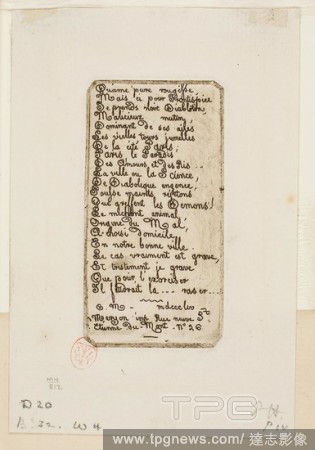 Qu'ame pure rougisse
Mais ci pour Frontispice
Je prends noir Diablotin,
Malicieux mutin,
Domin​ant de ses ailes
Les vieilles tours jumelles
De la cité Paris,
Paris le Paradis
Des Amours et des Ris...
La ville où la Science,
De Diabolique engence,
Pousse maints rejetons
Qui griffent les Démons!
Le méchant animal,
Origine du Mal,
A choisi domicile
En notre bonne ville.
Le cas vraiment est grave,
Et tristement je grave
Que pour l'exorciser
Il faudrait la.... raser....
C. M - mdcccliv
Meryon imp. Rue neuve St
Etienne du Mont - No 26
TPG
www.tpgnews.com / 達志影像
D 20
W H